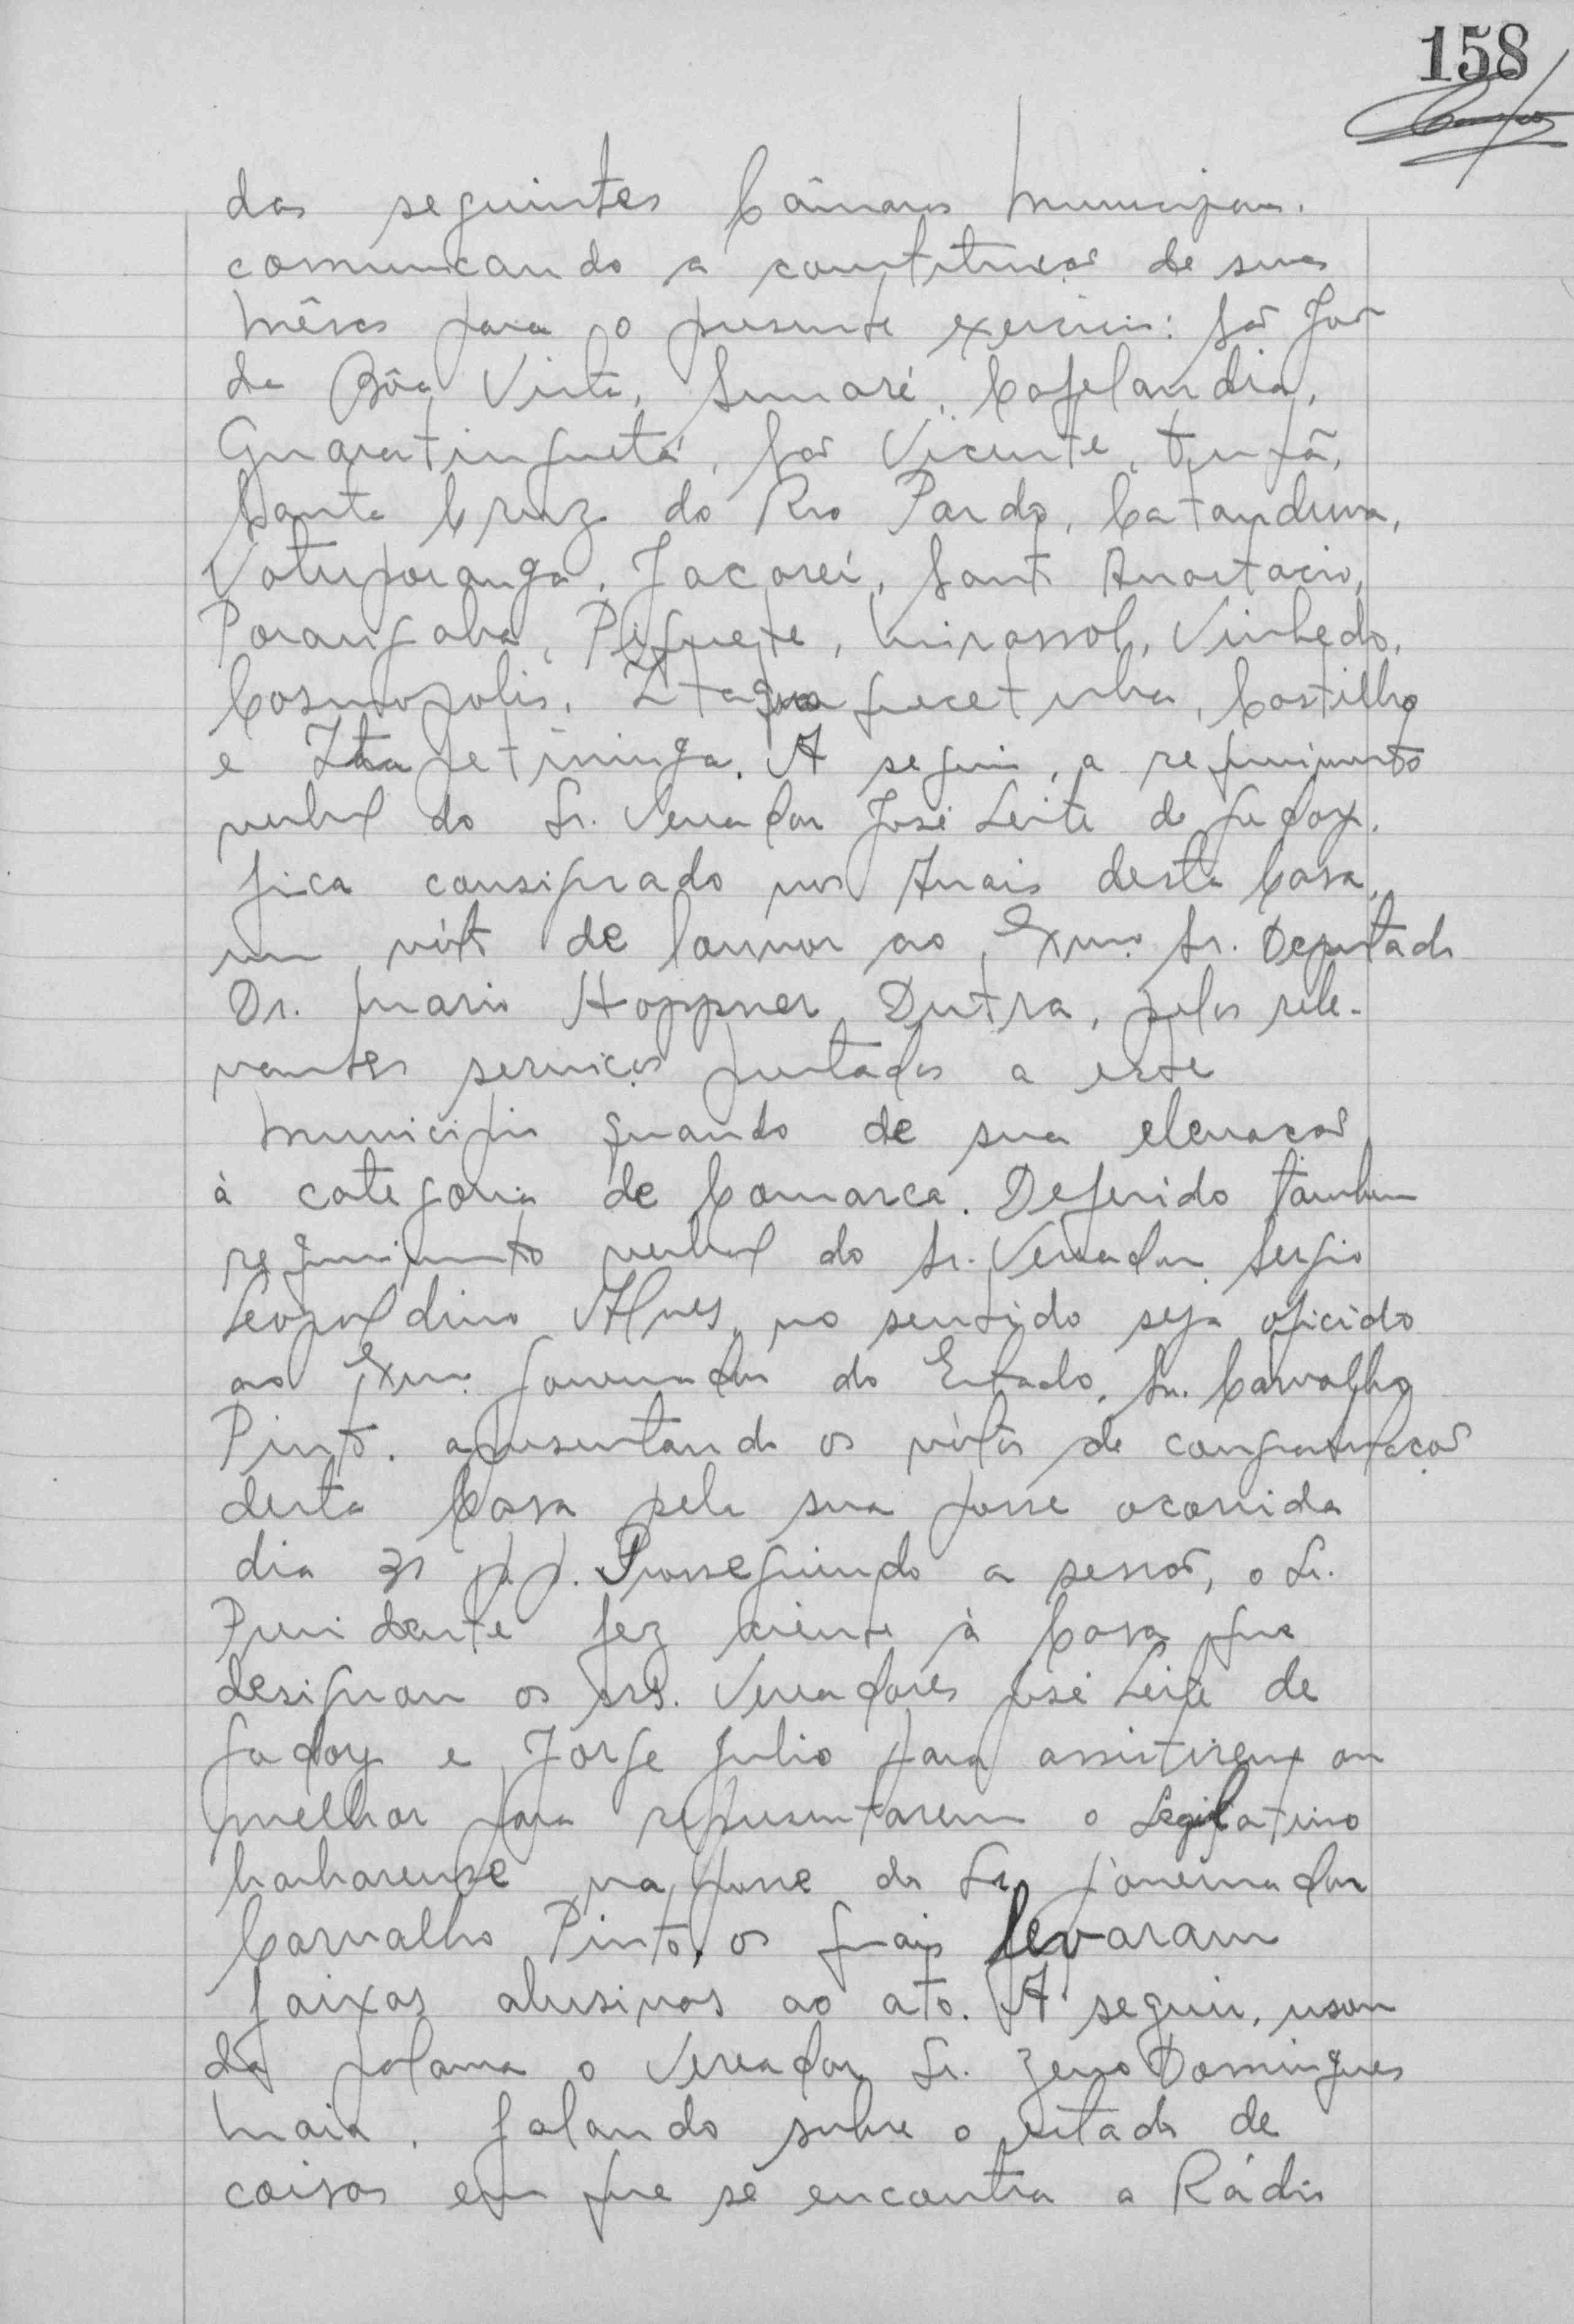 158
das seguintes Câmaras Municipais.
comunicando a constituição de suas
Mêsas para o presente exercicio: São João
da Bôa Vista, Sumaré, Cafelandia,
Guaratinguetá, São Vicente, Tupã,
Santa Cruz do Rio Pardo, Catanduva,
Votuporanga, Jacareí, Santo Anastacio,
Porangaba, Piquete, Mirassol, Vinhedo,
Cosmopolis, Itaquaquecetuba, Castilho
e Itapetininga. A seguir, a requerimento
verbal do Sr. Vereador José Leite de Godoy,
fica consignado nos Anais desta Casa,
um vóto de louvor ao Exmo. Sr. Deputado
Dr. Mario Hoppner Dutra, pelos rele-
vantes serviços prestados a este
Municipio quando de sua elevação
à categoria de Comarca. Deferido tambem
requerimento verbal do Sr. Vereador Sergio
Leopoldino Alves, no sentido seja oficiado
ao Exmo. Governador do Estado, Sr. Carvalho
Pinto, apresentando os vótos de congratulação
desta Casa pela sua posse ocorrida
dia 31 p.p. Prosseguindo a sessão, o Sr.
Presidente fez ciente à Casa que
designou os srs. Vereadores José Leite de
Godoy e Jorge Julio para assistirem ou
melhor para representarem o Legislativo
barbarense na posse do Sr. Governador
Carvalho Pinto, os quais levaram
faixas alusivas ao ato. A seguir, usou
da palavra o Vereador Sr. Zeno Domingues
Maia, falando sobre o estado de
coisas em que se encontra a Rádio